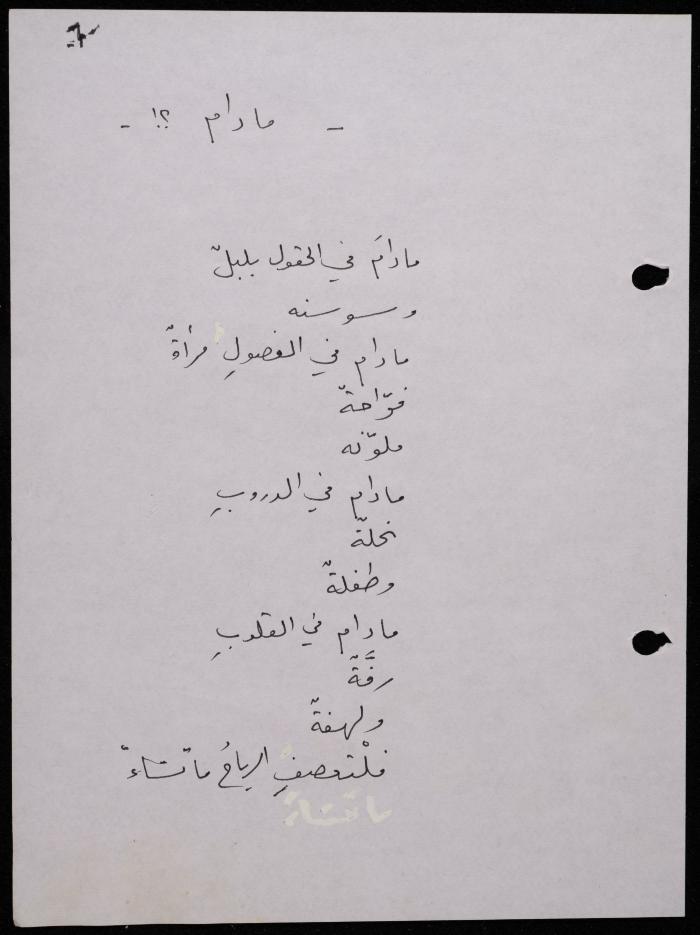 ٦
- مادام ؟! -
مادامَ في الحقول بلبلٌ
وسوسنه
مادام في الفصولِ مرأةٌ
فوّاحةٌ
ملوّنه
مادام في الدروبِ
نحلةٌ
وطفلةٌ
مادام في القلوبِ
رفَّةٌ
ولهفةٌ
فلْتعصفِ الرياحُ ما تشاءْ